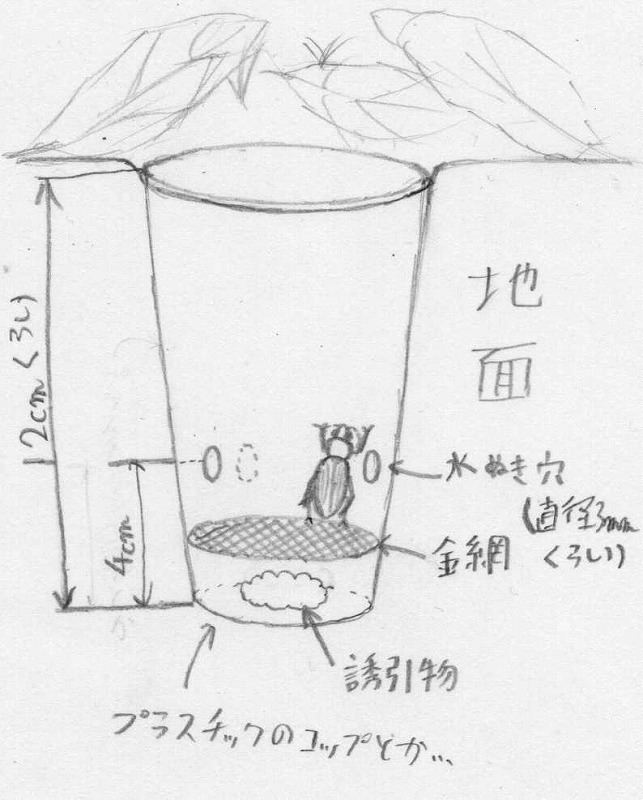 地
面
12cmくらい
水ぬき穴
(直径3mm
くらい)
4cm
金網
誘引物
プラスチックのコップとか...